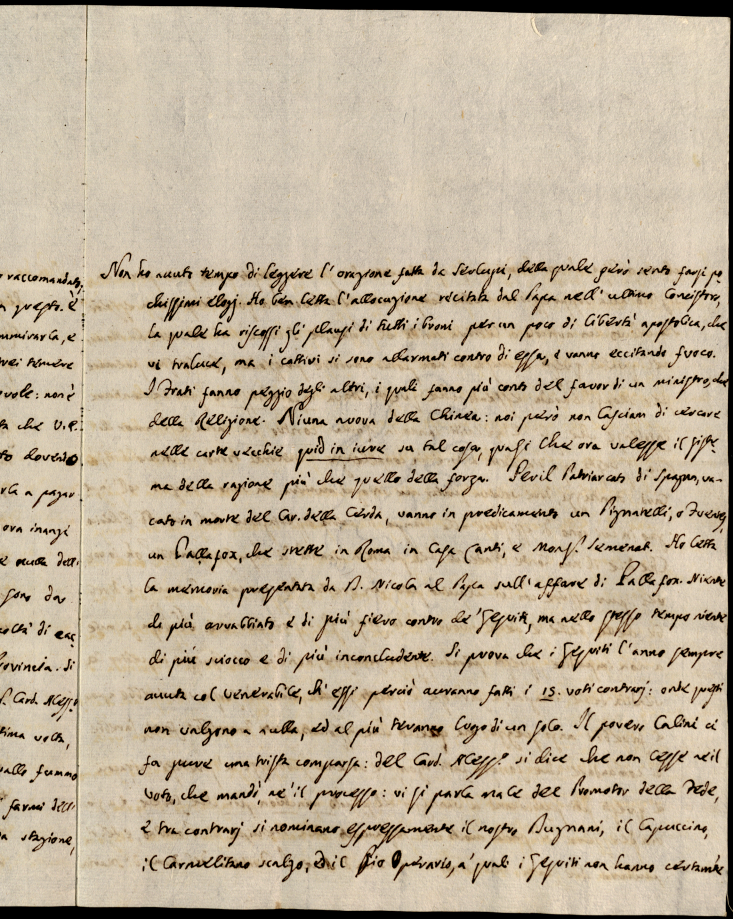 raccomandato,
questo. è
ammirarla, e
rei temere
vole: non è
ta che V.P.
to dovendo
rla a pagar
ora inanzi
e nulla dell'
sono due
coltà di
Provincia. Si
Card. Aless.º
tima volta,
quallo fummo
farmi dell'
a stagione,
Non ho avuto tempo di leggere l'orazione fatta da Serlupi, della quale però sento farsi po
chissimi elogj. Ho ben letta l'allocuzione recitata dal Papa nell'ultimo Concistoro,
la quale ha riscossi gli plausi di tutti i buoni per un poco di libertà apostolica, che
vi traluce, ma i cattivi si sono allarmati contro di essa, e vanno eccitando fuoco.
I Frati fanno peggio degli altri, i quali fanno più conto del favor di un ministro, che
della Religione. Niuna nuova della Chinea: noi però non lasciam di cercare
nelle carte vecchie quid in iure su tal cosa, quasi che ora valesse il siste-
ma della ragione più che quello della forza. Pe'l Patriarcato di Spagna, va-
cato in morte del Car. della Cerda, vanno in predicamento un Pignatelli, o Fuentes,
un Pallafox, che stette in Roma in Casa Conti, e Mons.r Semenat. Ho letta
la memoria presentata da P. Nicola al Papa sull'affare di Pallafox. Niente
di più arrabbiato e di più fiero contro de' Gesuiti, ma nello stesso tempo niente
di più sciocco e di più inconcludente. Si prova che i Gesuiti l'anno sempre
avuta col Venerabile, ch'essi perciò avranno fatti i 15. voti contrarj: onde questi
non valgono a nulla, ed al più terranno luogo di un solo. Il povero Calini ci
fa pure una trista comparsa: del Card. Aless.º si dice che non lesse ne il
voto, che mandò, ne' il processo: vi si parla male del Promotor della Fede,
e tra contrarj si nominano espressamente il nostro Bugnani, il Capuccino,
il Carmelitano scalzo, ed il Pio Operario, a' quali i Gesuiti non hanno certamte